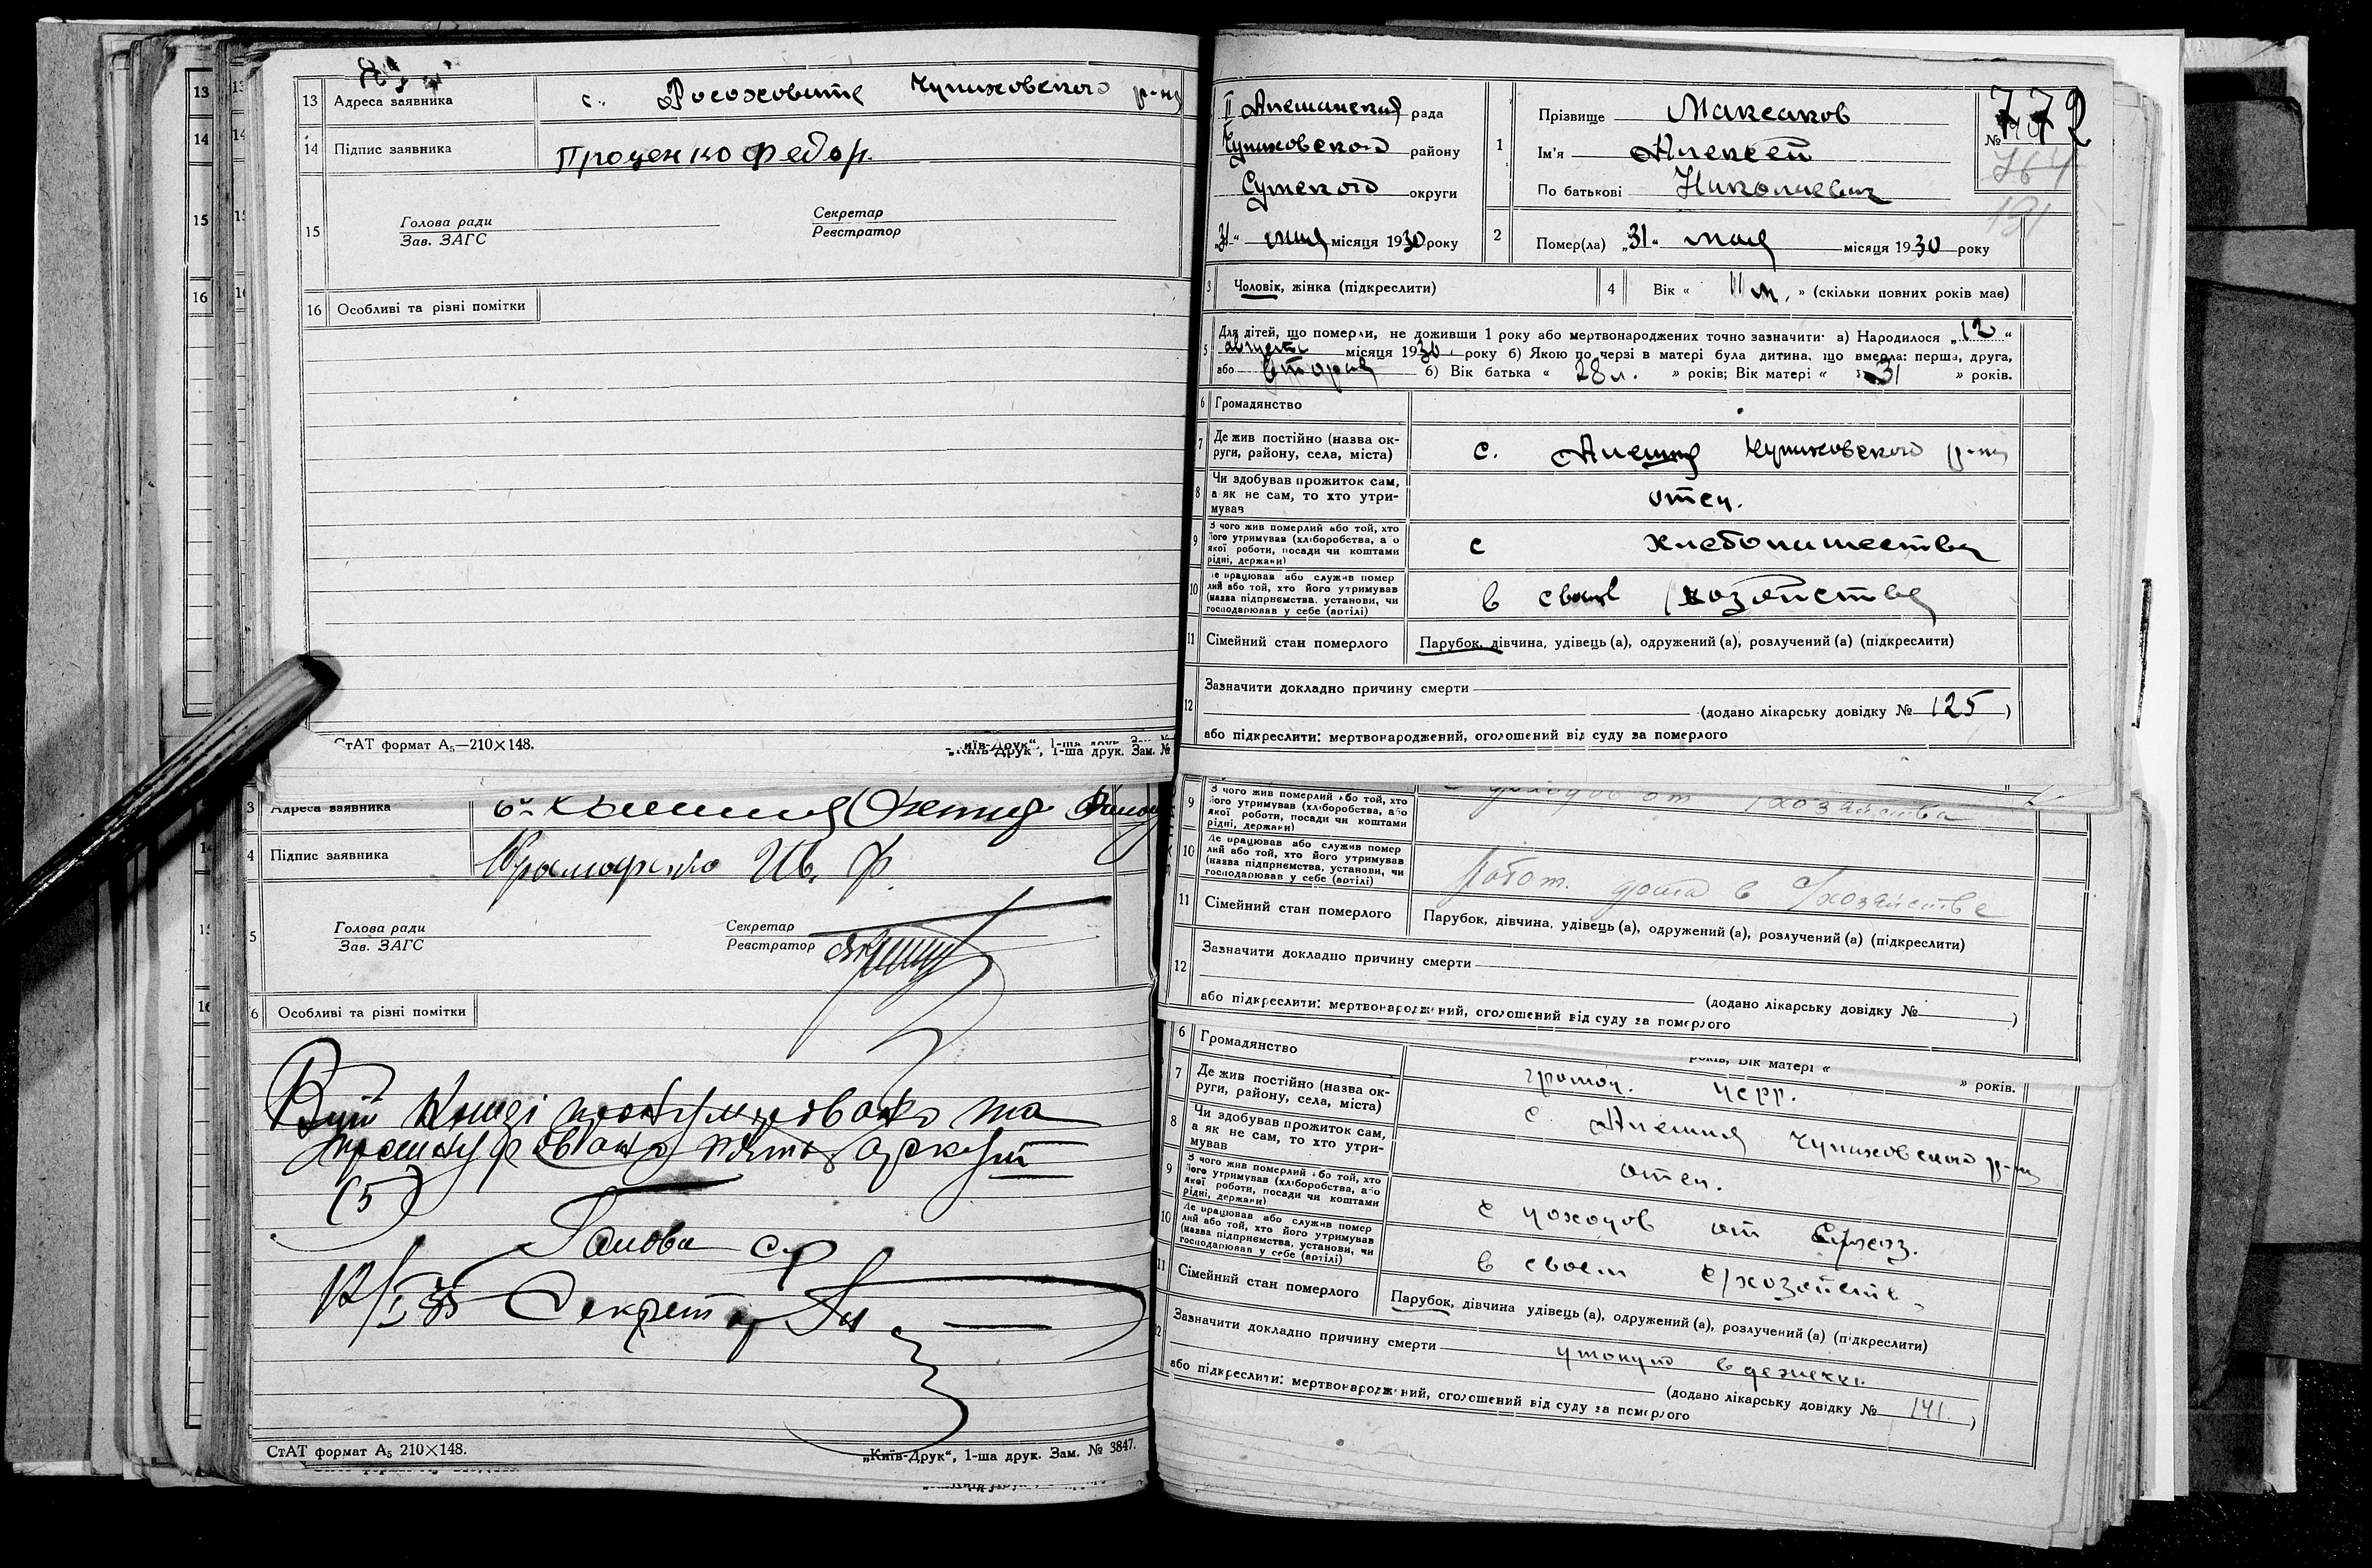 13 Адреса заявника с. Рогоховите Чупиховского р-на
14 Підпис заявника Проценко Федор.
15 Голова ради
Зав. ЗАГС
Секретар
Реєстратор
16 Особливі та різні помітки
СтАТ формат А₅—210×148.
„Київ-Друк“, 1-ша друк. Зам. №
Адреса заявника
4 Підпис заявника Ив. Ф.
5 Голова ради
Зав. ЗАГС
Секретар
Реєстратор
6 Особливі та різні помітки
В цій Книзі пронумеровано та
прошнуровано пять аркуш
(5)
Голова с/р
Секретар
СтАТ формат А₅ 210×148.
„Київ-Друк“, 1-ша друк. Зам. № 3847.
II Алешанская рада
Чупиховского району
Сумского округи
„31“ мая місяця 1930 року
1 Прізвище Максаков
Ім'я Алексей
По батькові Николаевич
№ 772
764
191
2 Помер(ла) „31“ мая місяця 1930 року
3 Чоловік, жінка (підкреслити)
4 Вік « 11 м. » (скільки повних років має)
5 Для дітей, що померли, не доживши 1 року або мертвонароджених точно зазначити: а) Народилося „12“
августа місяця 1930 року б) Якою по черзі в матері була дитина, що вмерла: перша, друга,
або вторая б) Вік батька « 28 л. » років; Вік матері « 31 » років.
6 Громадянство
7 Де жив постійно (назва ок-
руги, району, села, міста) с. Алешня Чупиховского р-на
8 Чи здобував прожиток сам,
а як не сам, то хто утри-
мував отец.
9 З чого жив померлий або той, хто
його утримував (хліборобства, або
якої роботи, посади чи коштами
рідні, держави) с хлебопашества
10 Де працював або служив помер
лий або той, хто його утримував
(назва підприємства, установи, чи
господарював у себе (артілі) в своей хозяйства
11 Сімейний стан померлого Парубок, дівчина, удівець (а), одружений (а), розлучений (а) (підкреслити)
12 Зазначити докладно причину смерти
(додано лікарську довідку № 125)
або підкреслити: мертвонароджений, оголошений від суду за померлого
9 З чого жив померлий або той, хто
його утримував (хліборобства, або
якої роботи, посади чи коштами
рідні, держави) доходов от хозяйства
10 Де працював або служив помер
лий або той, хто його утримував
(назва підприємства, установи, чи
господарював у себе (артілі) Работ. дома в с/хозяйстве
11 Сімейний стан померлого Парубок, дівчина, удівець (а), одружений (а), розлучений (а) (підкреслити)
12 Зазначити докладно причину смерти
(додано лікарську довідку № )
або підкреслити: мертвонароджений, оголошений від суду за померлого
років; Вік матері « » років.
6 Громадянство
7 Де жив постійно (назва ок-
руги, району, села, міста) с. Алешня Чупиховского р-на
8 Чи здобував прожиток сам,
а як не сам, то хто утри-
мував отец.
9 З чого жив померлий або той, хто
його утримував (хліборобства, або
якої роботи, посади чи коштами
рідні, держави) с доходов от
10 Де працював або служив помер
лий або той, хто його утримував
(назва підприємства, установи, чи
господарював у себе (артілі) в своем с/хозяйств.
11 Сімейний стан померлого Парубок, дівчина удівець (а), одружений (а), розлучений (а) (підкреслити)
Зазначити докладно причину смерти утонул в дежекс.
(додано лікарську довідку № 141.)
або підкреслити: мертвонароджений, оголошений від суду за померлого